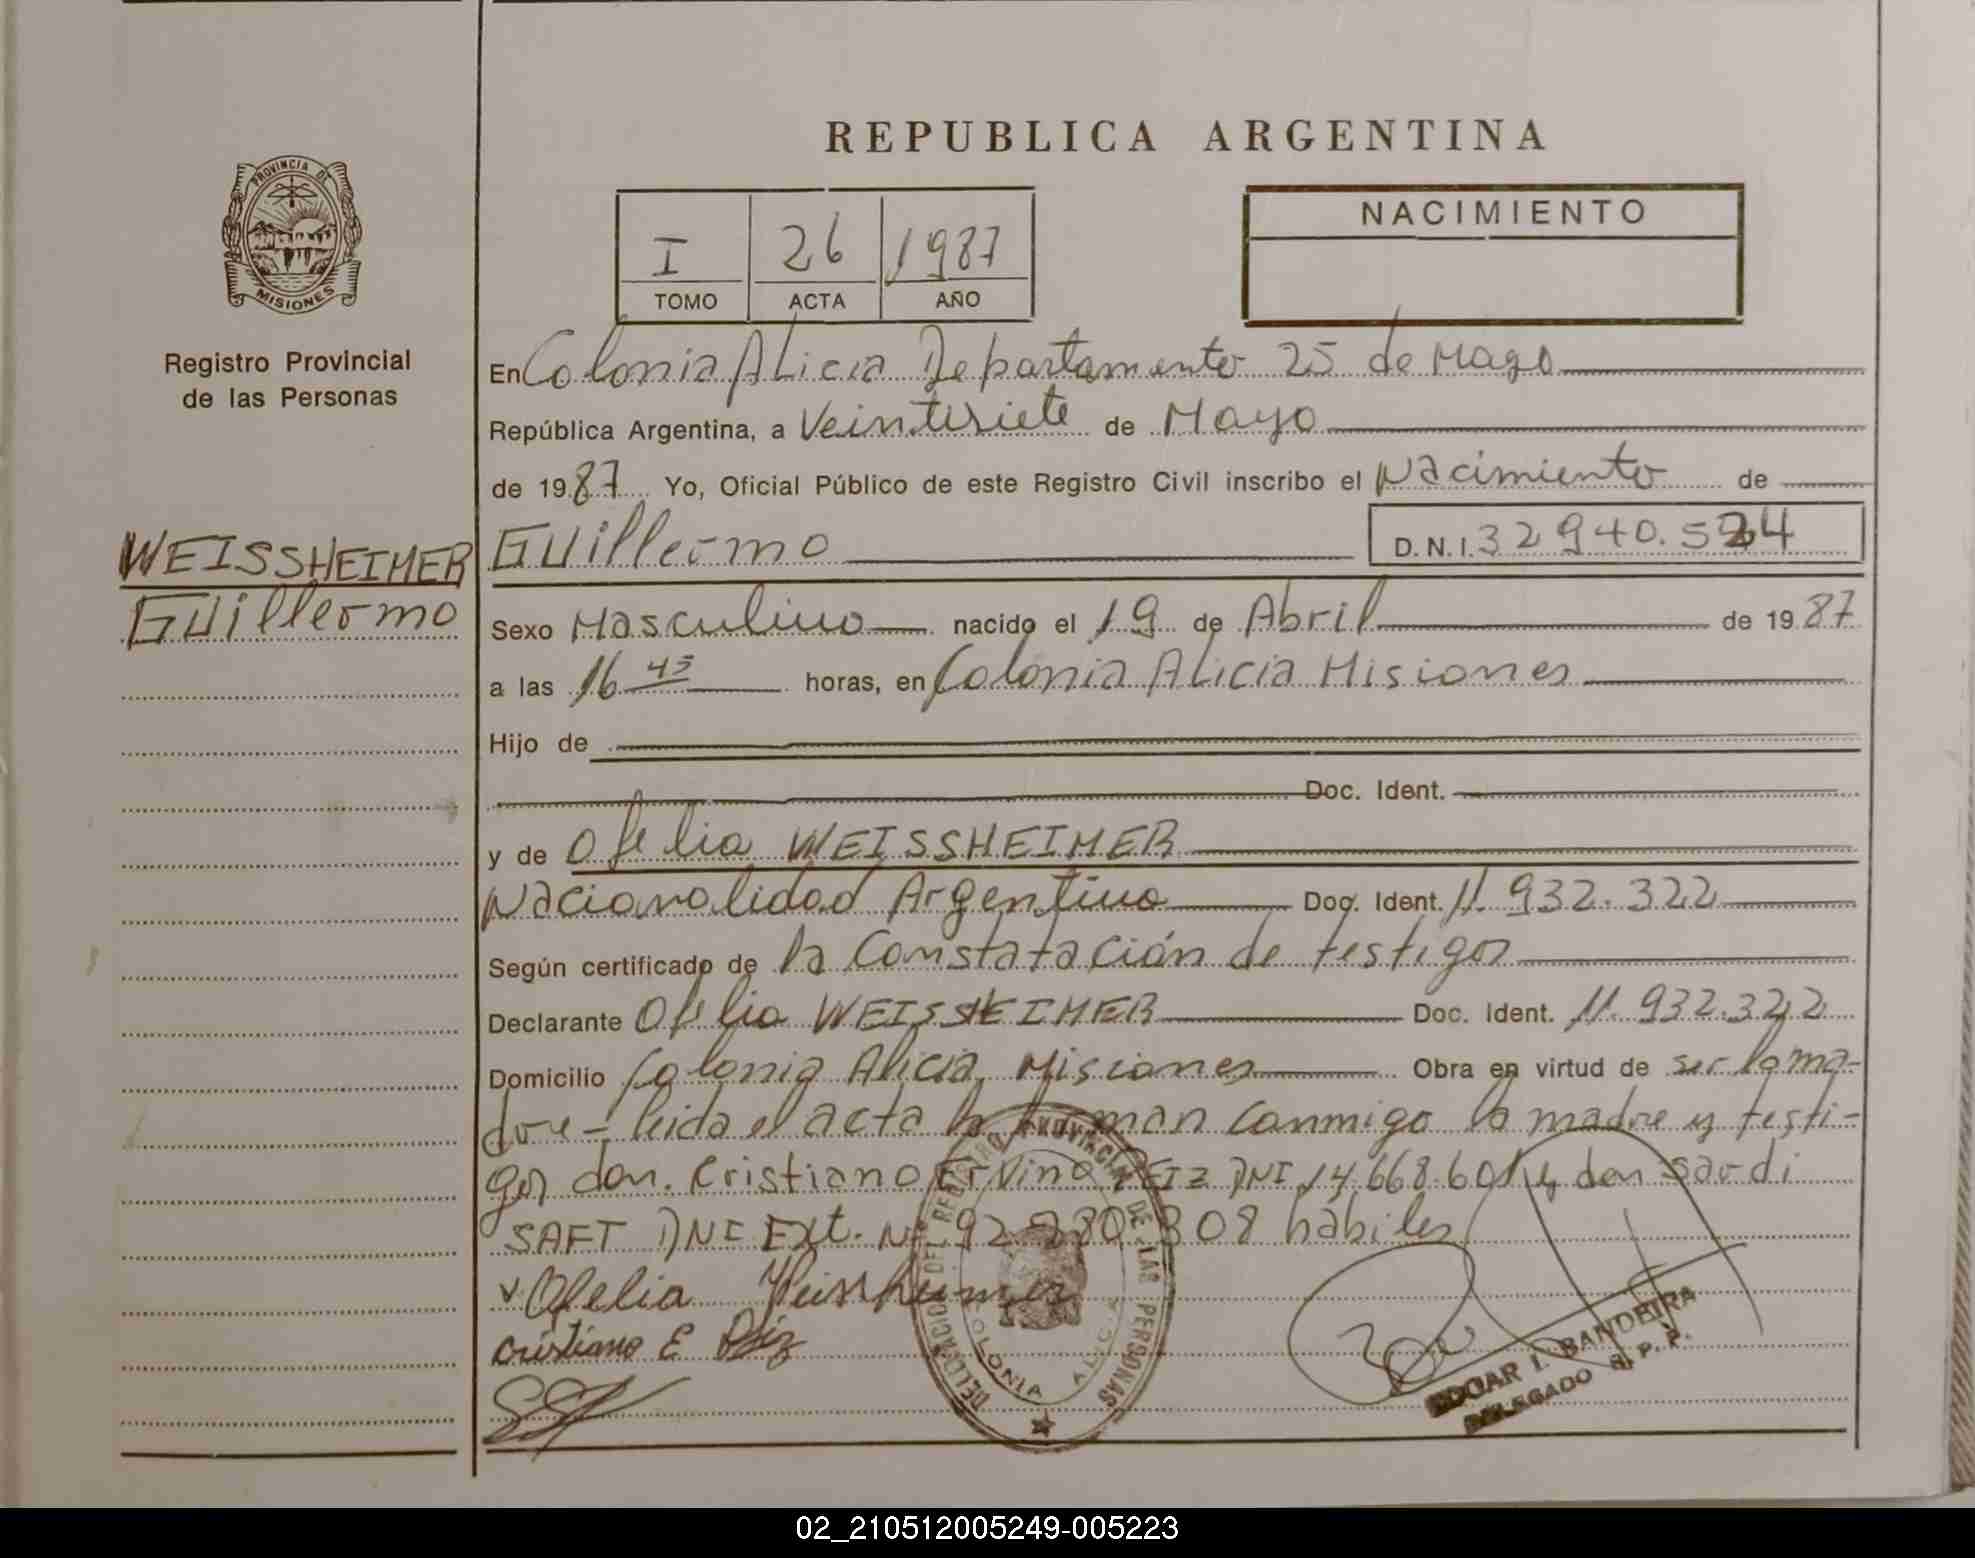 REPUBLICA ARGENTINA
PROVINCIA DE
MISIONES
Registro Provincial
de las Personas
I 26 1987
TOMO ACTA AÑO
NACIMIENTO
En Colonia Alicia Departamento 25 de Mayo
República Argentina, a Veintisiete de Mayo
de 1987 Yo, Oficial Público de este Registro Civil inscribo el Nacimiento de
WEISSHEIMER
Guillermo
Guillermo D.N.I. 32940.524
Sexo Masculino nacido el 19 de Abril de 1987
a las 16 45 horas, en Colonia Alicia Misiones
Hijo de
Doc. Ident.
y de Ofelia WEISSHEIMER
Nacionalidad Argentina Doc. Ident. 11.932.322
Según certificado de la Constatación de testigos
Declarante Ofelia WEISSHEIMER Doc. Ident. 11.932.322
Domicilio Colonia Alicia Misiones Obra en virtud de ser la ma-
dre - leida el acta la firman conmigo la madre y testi-
gos don. Cristiano Ervino DNI 14.668.601 y don Sardi
SAFT DNI Ext. Nº 92.280 808 habiles
Ofelia Weissheimer
Cristiano E
DELEGACION DEL REGISTRO PROVINCIAL DE LAS PERSONAS
COLONIA ALICIA
EDGAR I. BANDEIRA
DELEGADO R. P. P.
02_210512005249-005223